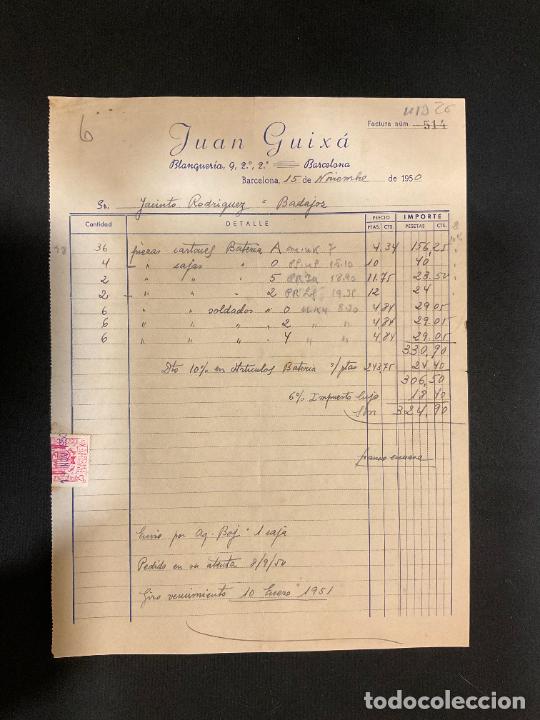 6
Factura núm. 514
Juan Guixá
Blanquería, 9, 2.º, 2.ª Barcelona
Barcelona, 15 de Noviembre de 1950
Sr. Jacinto Rodriguez - Badajoz
Cantidad DETALLE PRECIO IMPORTE
PTAS. CTS. PESETAS CTS.
36 piezas cartones Bateria A 7 4,34 156,25
4 " cajas " 0 10 40
2 " " " 5 11.75 23.50
2 " " " 2 12 24
6 " " soldados " 0 4,84 29.05
6 " " " 2 4,84 29.05
6 " " " 4 4,84 29.05
330,90
Dto 10% en Artículos Bateria s/ptas 243,75 24,40
306,50
6% Impuesto lujo 18,40
Son 324,90
Envio por Ag. 1 caja
Pedido en su atenta 8/9/50
Giro vencimiento 10 Enero 1951
todocoleccion.net